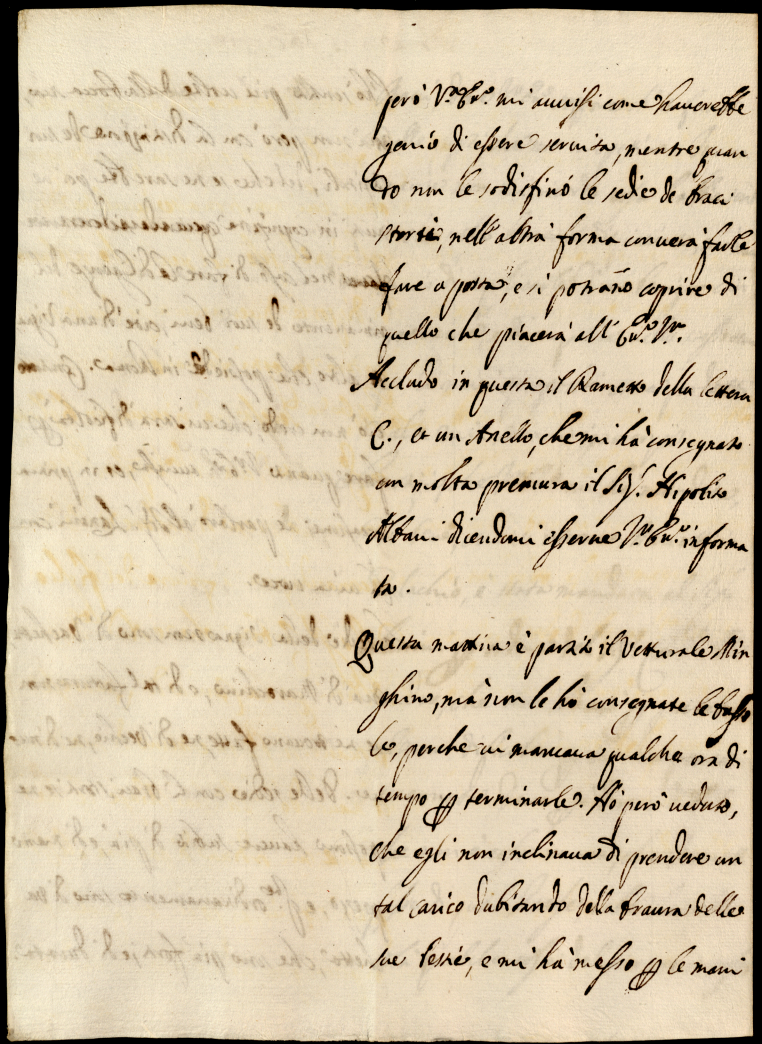 però V.ra Ecc.a mi avvisi come haverebbe
genio di essere servita, mentre quan
do non le sodisfino le sedie de braci
storti, nell'altra forma converà farle
fare a posta, e si potrano coprire di
quello che piacerà all' Ecc.a V.ra
Accludo in questa il Rametto della lettera
C., et un Anello, che mi hà consegnato
con molta premura il Sig.r Hipolito
Albani dicendomi esserne V.ra Ecc.a informa
ta.
Questa mattina è partito il Vetturale Min
ghino, mà non le hò consegnate le busso
le, perche vi mancava qualche ora di
tempo per terminarle. Hò però veduto,
che egli non inclinava di prendere un
tal carico dubitando della bravura delle
sue bestie, e mi hà messo per le mani